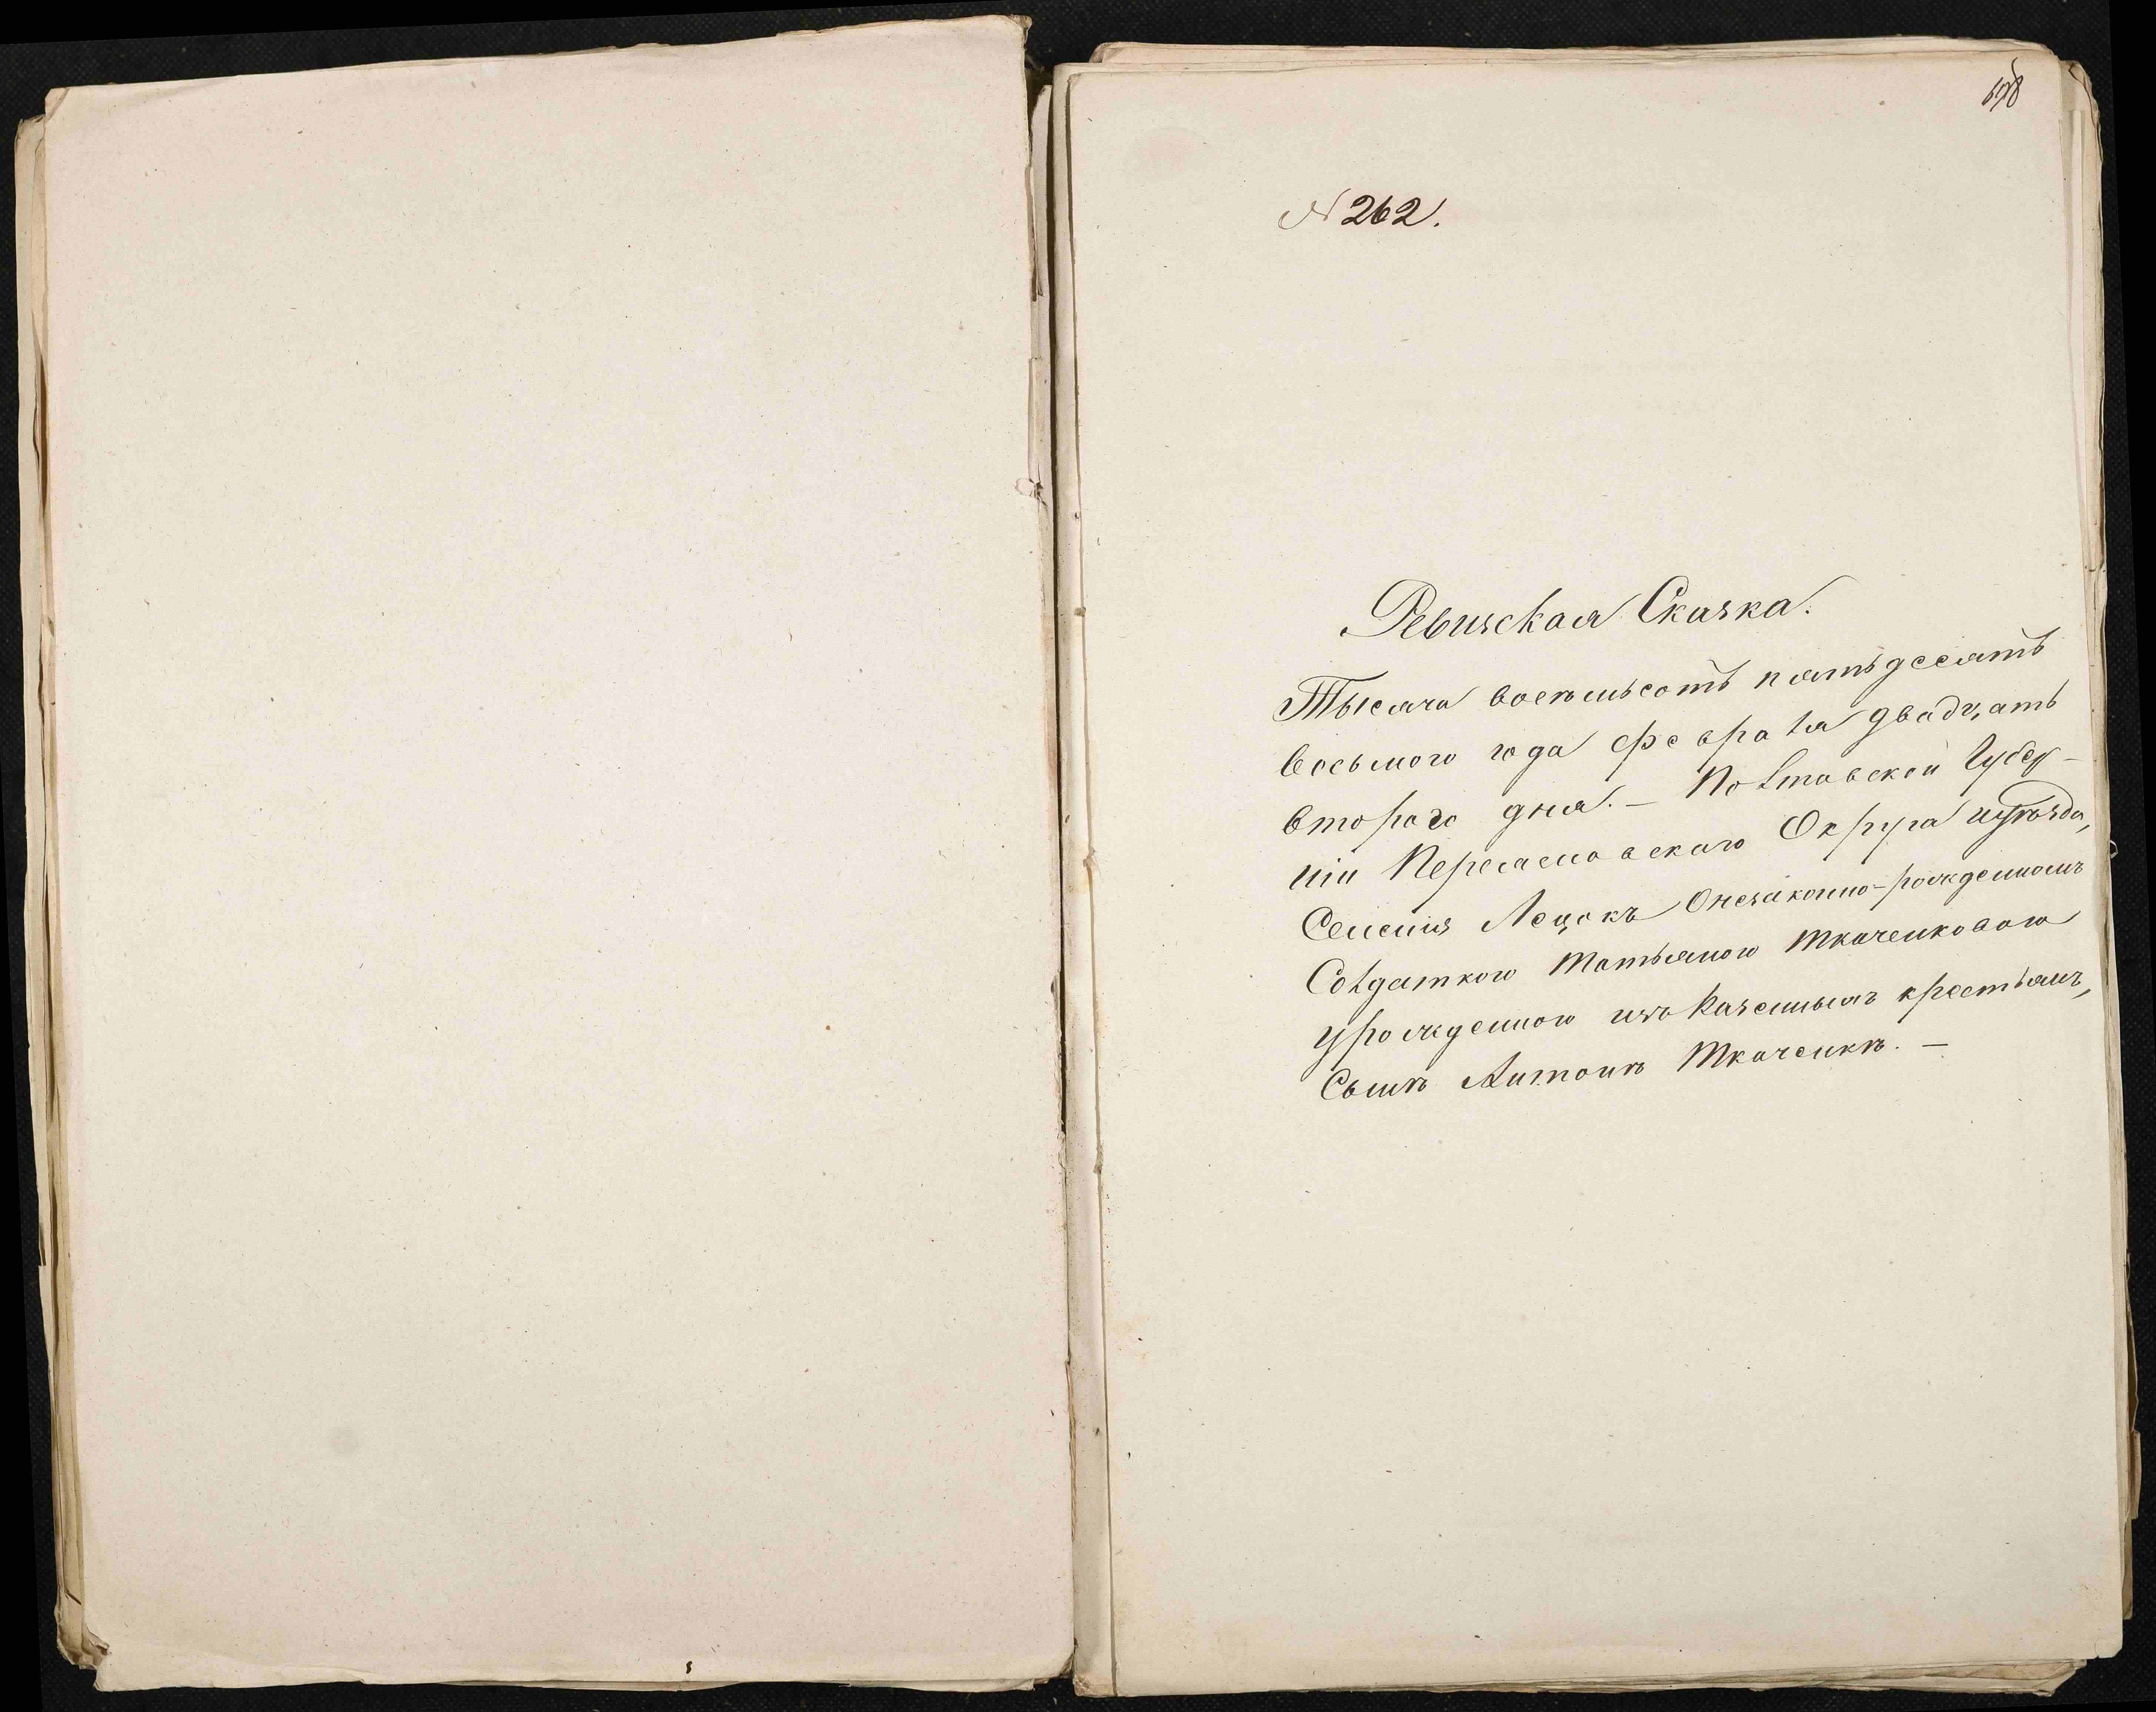 698
№ 262.
Ревизская Сказка.
Тысяча восемьсотъ пятьдесятъ
восьмого года февраля двадцать
второго дня. — Полтавской Губер-
ніи Переяславскаго Округа и уѣзда,
Селенія Лецокъ О незаконно-рожденномъ
Солдаткою Татьяною Ткаченковою
урожденною изъ Казенныхъ крестьянъ,
Сынъ Антонъ Ткаченкъ. —